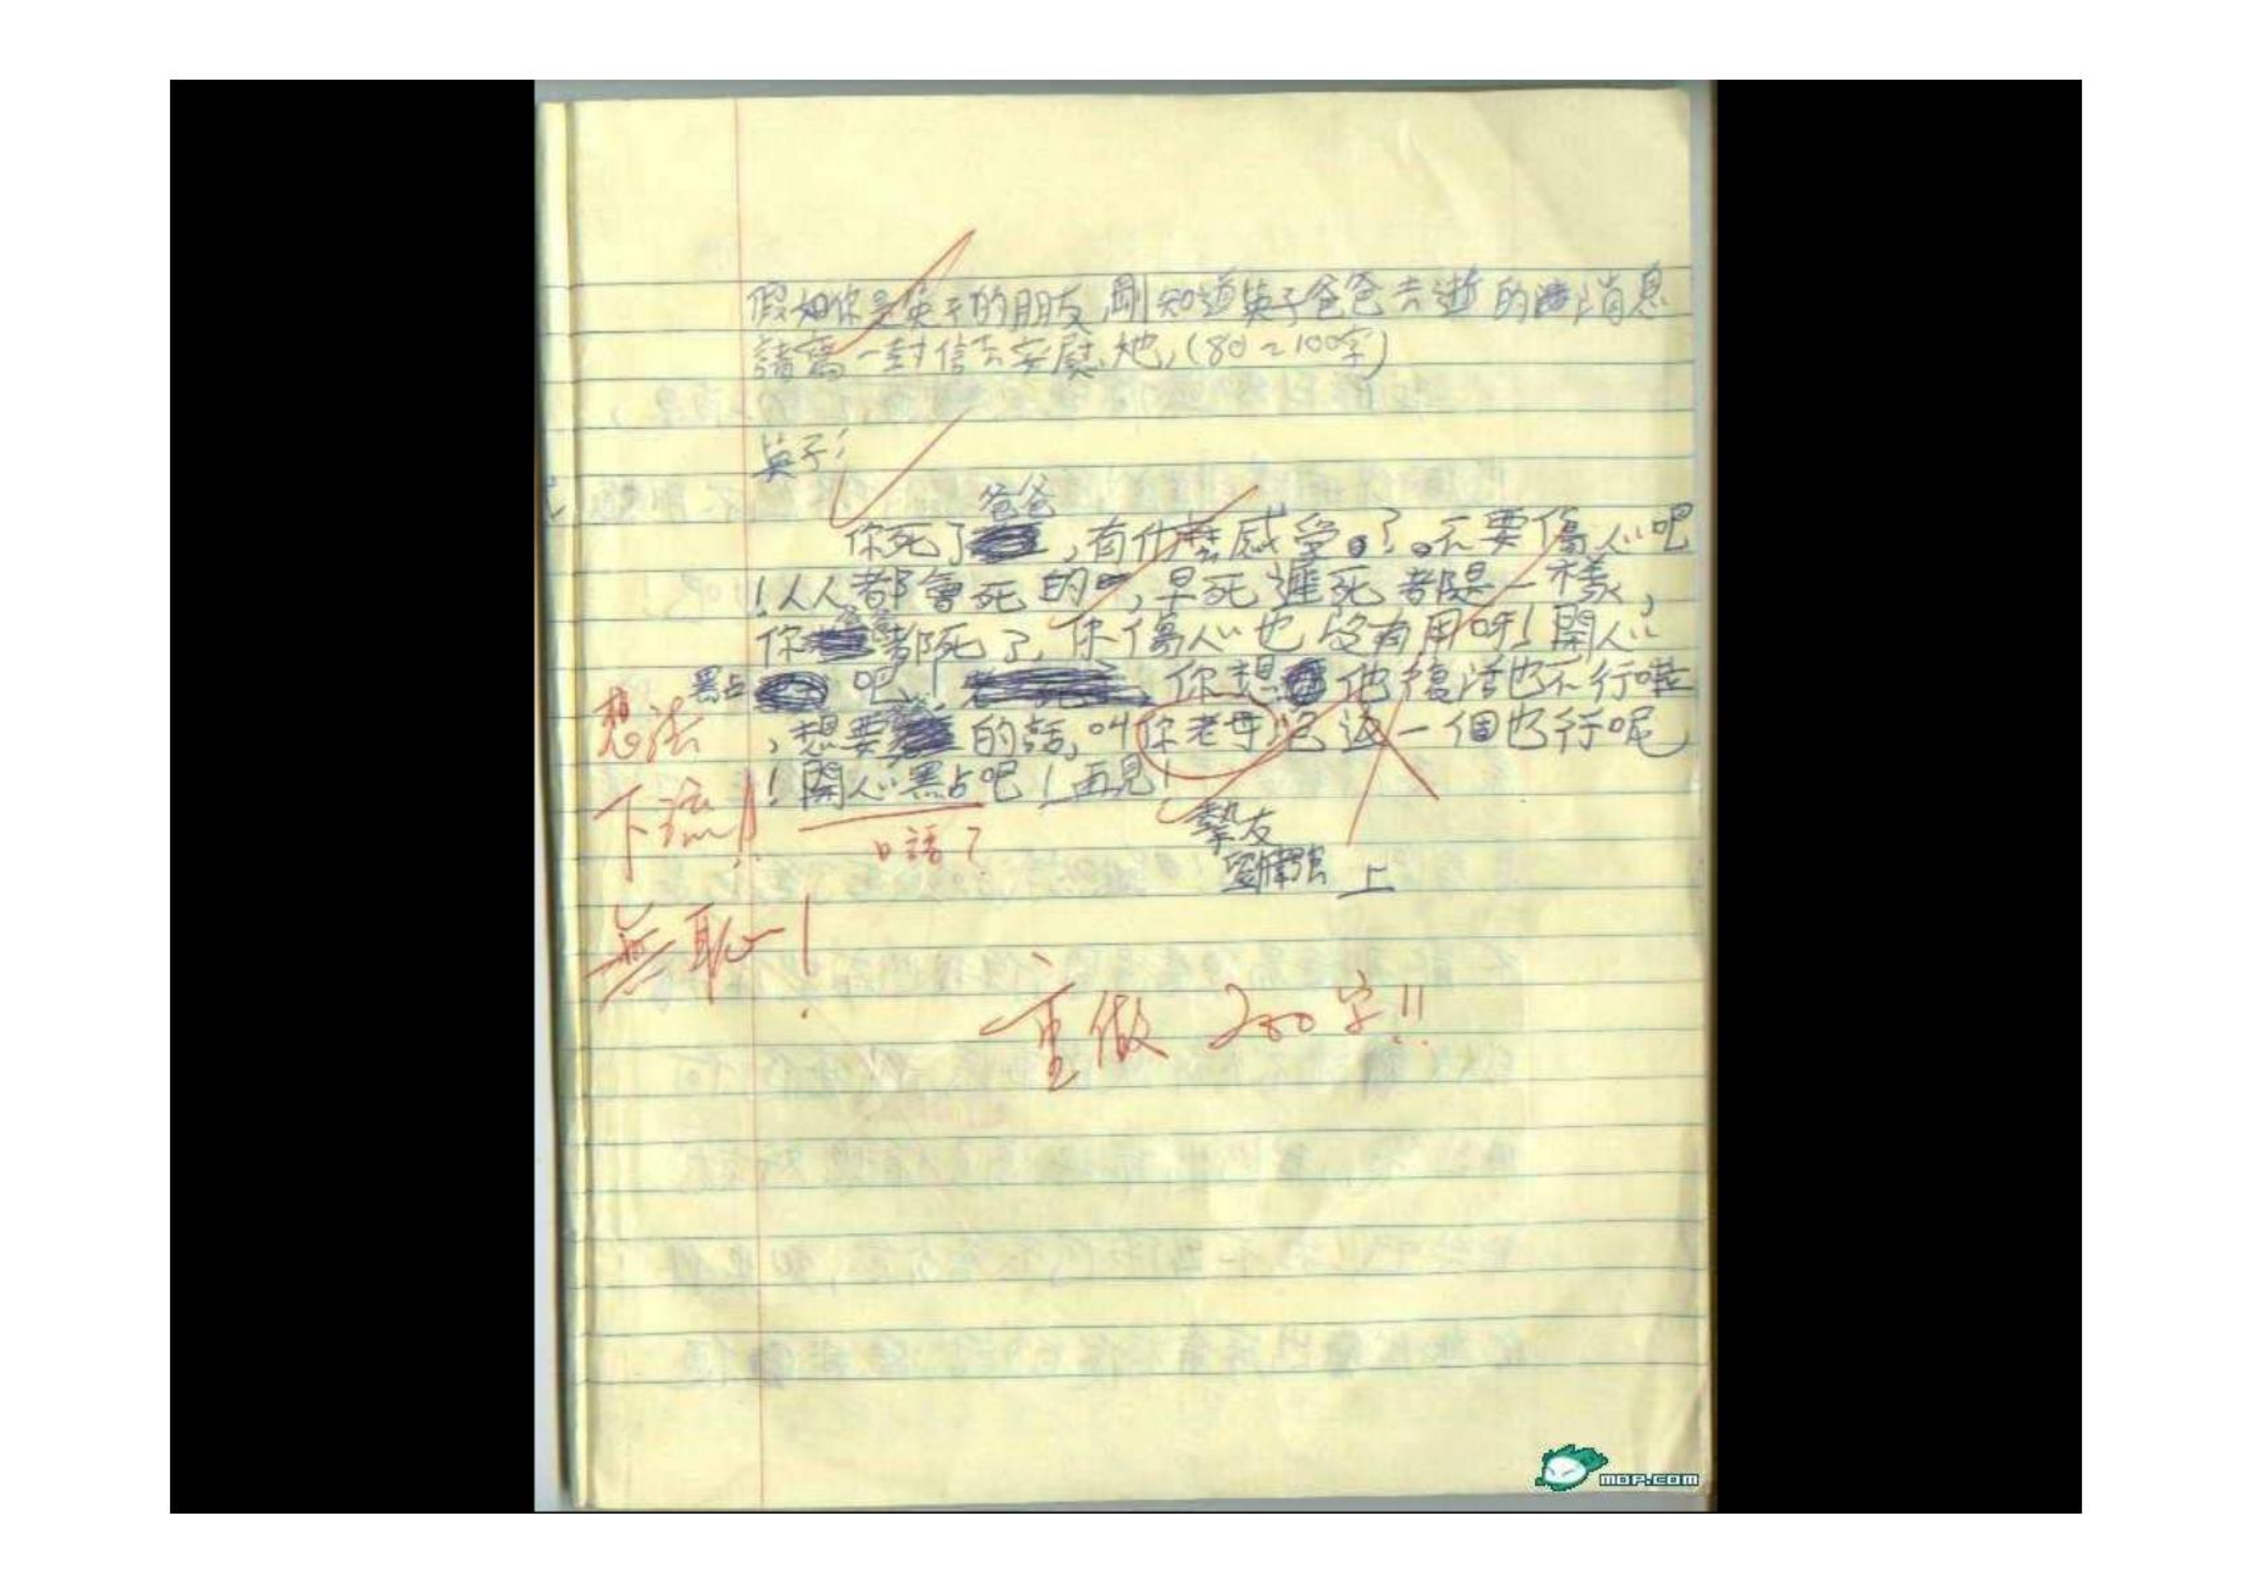 假如你是英子的朋友,剛知道英子爸爸去逝的消息
請寫一封信去安慰她,(80~100字)
英子:
爸爸
你死了,有什麼感受?不要傷心吧
!人人都會死的,早死遲死都是一樣,
你都死了,你傷心也沒有用呀!開心
點吧!你想他復活也不行啦
,想要的話,叫你老母
一個也行呢
!開心點吧!再見!
摯友
上
想法
下流!!
口語?
無恥!
重做 200字!!
MOP.COM